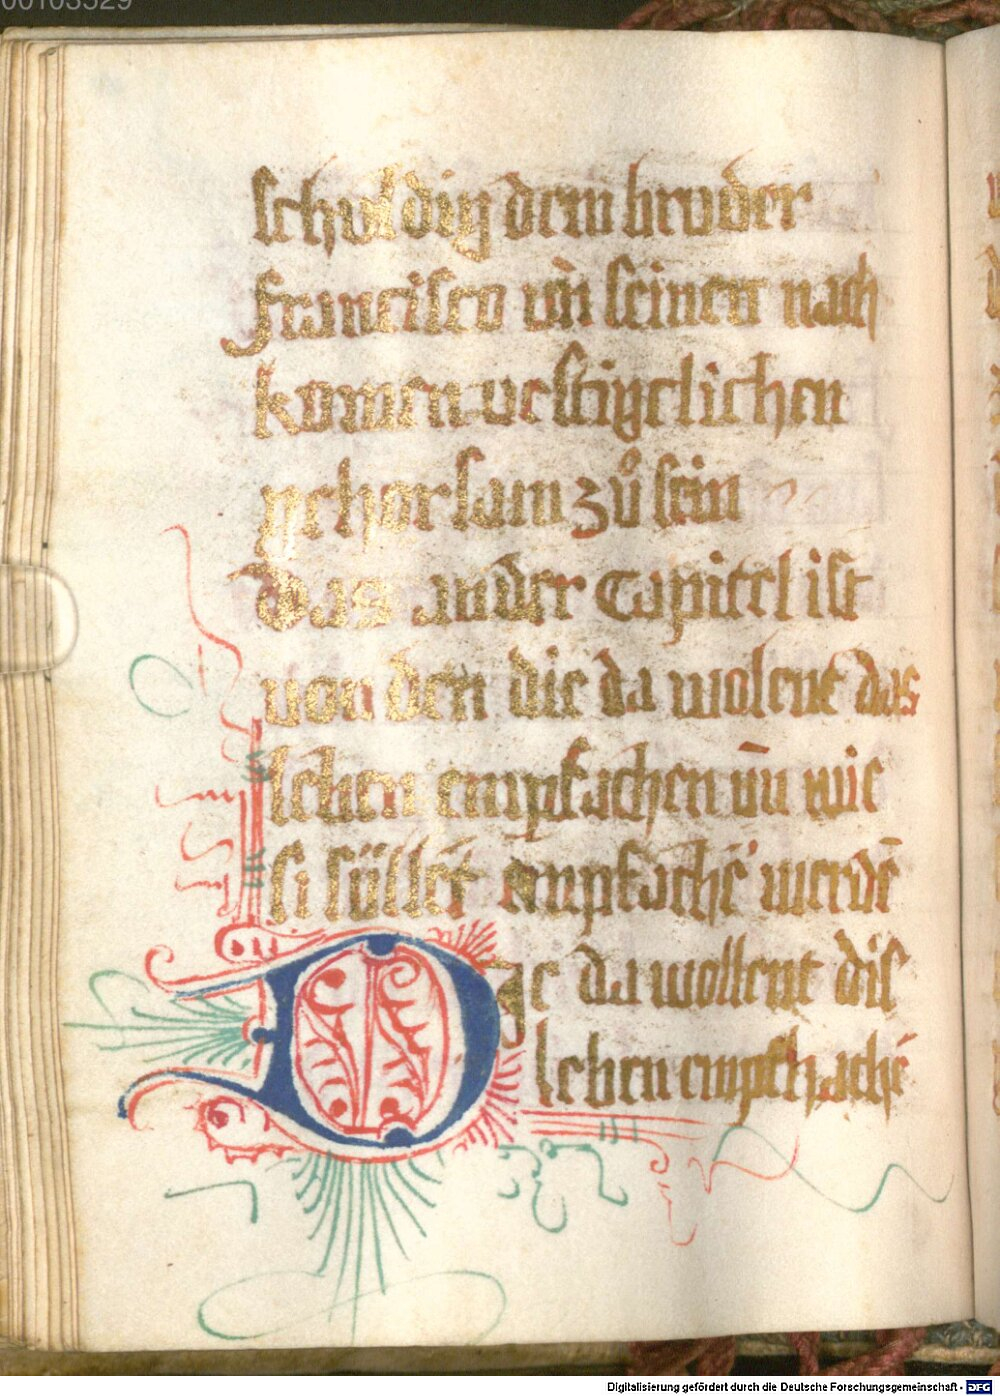 00103529
schuldig dem bruder
francisco vn̄ seinen nach
komen vestigclichen
gehorsam zů sein
das ander Capitel ist
von den die da wolent das
leben empfachen vn̄ wie
si süllēt empfachē werdē
Dje da wollent dis
leben empfhachē
Digitalisierung gefördert durch die Deutsche Forschungsgemeinschaft - DFG